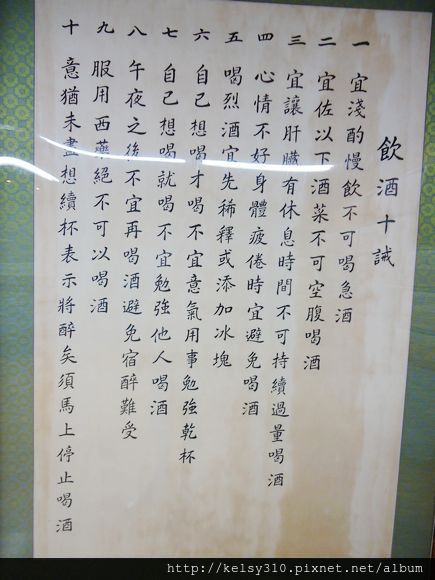 飲酒十誡
一 宜淺酌慢飲不可喝急酒
二 宜佐以下酒菜不可空腹喝酒
三 宜讓肝臟有休息時間不可持續過量喝酒
四 心情不好身體疲倦時宜避免喝酒
五 喝烈酒宜先稀釋或添加冰塊
六 自己想喝才喝不宜意氣用事勉強乾杯
七 自己想喝就喝不宜勉強他人喝酒
八 午夜之後不宜再喝酒避免宿醉難受
九 服用西藥絕不可以喝酒
十 意猶未盡想續杯表示將醉矣須馬上停止喝酒
http://kelsy310.pixnet.net/album